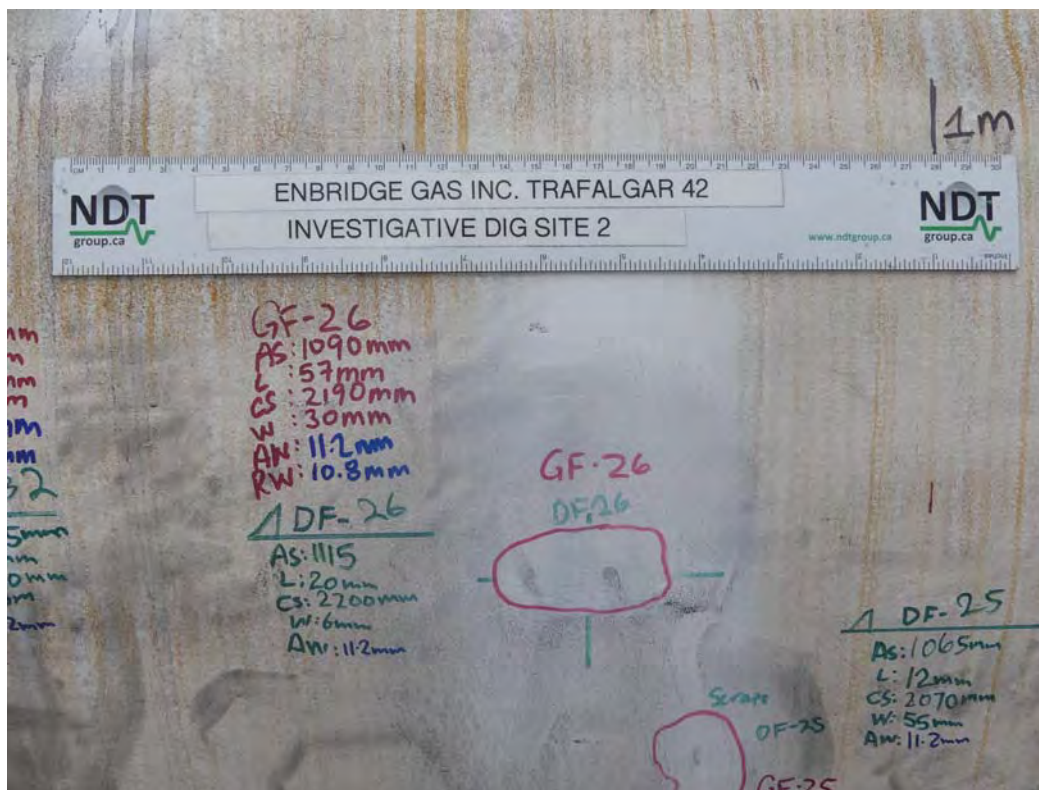 1m
NDT
group.ca
ENBRIDGE GAS INC. TRAFALGAR 42
INVESTIGATIVE DIG SITE 2
www.ndtgroup.ca
NDT
group.ca
GF-26
AS:1090mm
L:57mm
CS:2190mm
W:30mm
AW:11.2mm
RW:10.8mm
DF-26
AS:1115
L:20mm
CS:2200mm
W:6mm
AW:11.2mm
GF-26
DF-26
DF-25
AS:1065mm
L:12mm
CS:2070mm
W:55mm
AW:11.2mm
Scrape
DF-25
GF-25